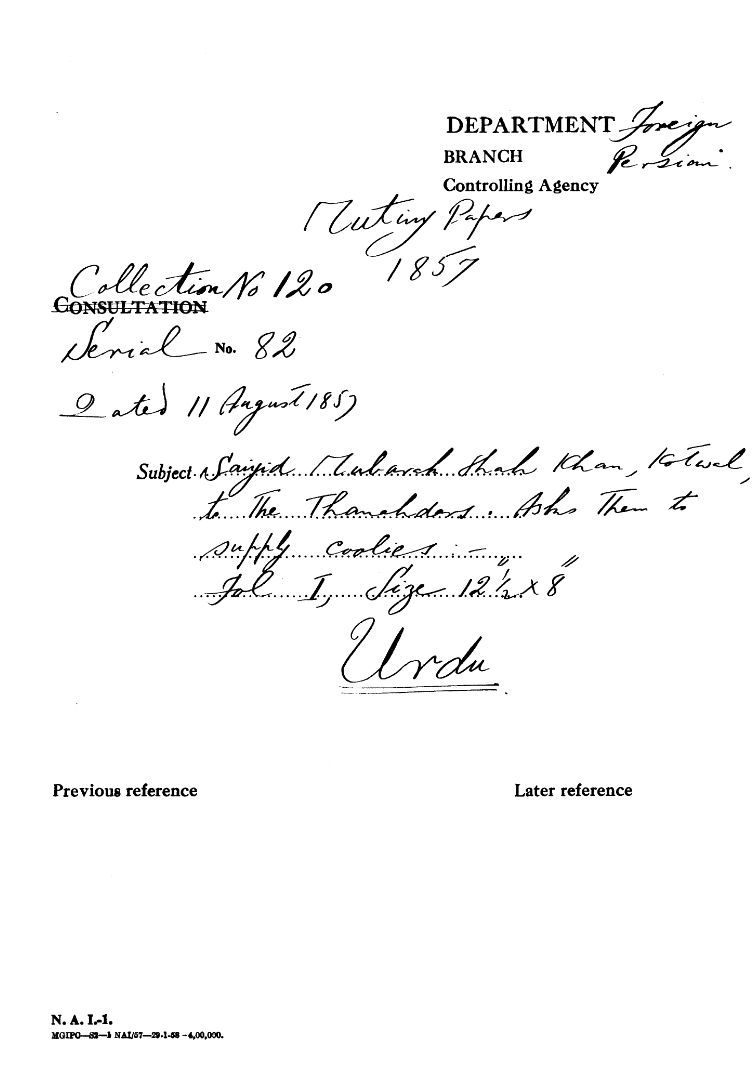 DEPARTMENT Foreign
BRANCH Persian.
Controlling Agency
Mutiny Papers
1857
Collection No 120
CONSULTATION
Serial No. 82
Dated 11 August 1857
Subject. Saiyid Mubarak Shah Khan, Kotwal,
to The Thanahdars. Asks Them to
supply coolies :-
Fol I, Size 12½" X 8"
Urdu
Previous reference Later reference
N. A. I.-1.
MGIPC—S2—1 NAI/57—29-1-58—4,00,000.